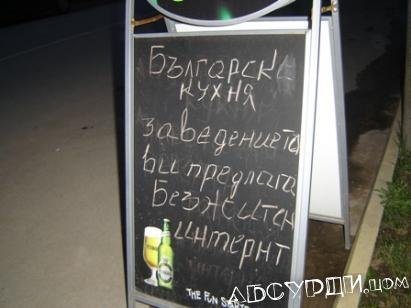 Българска
кухня
заведението
ви предлага
Безжитен
интернт
THE FUN STARTS
АБСУРДИ.цом